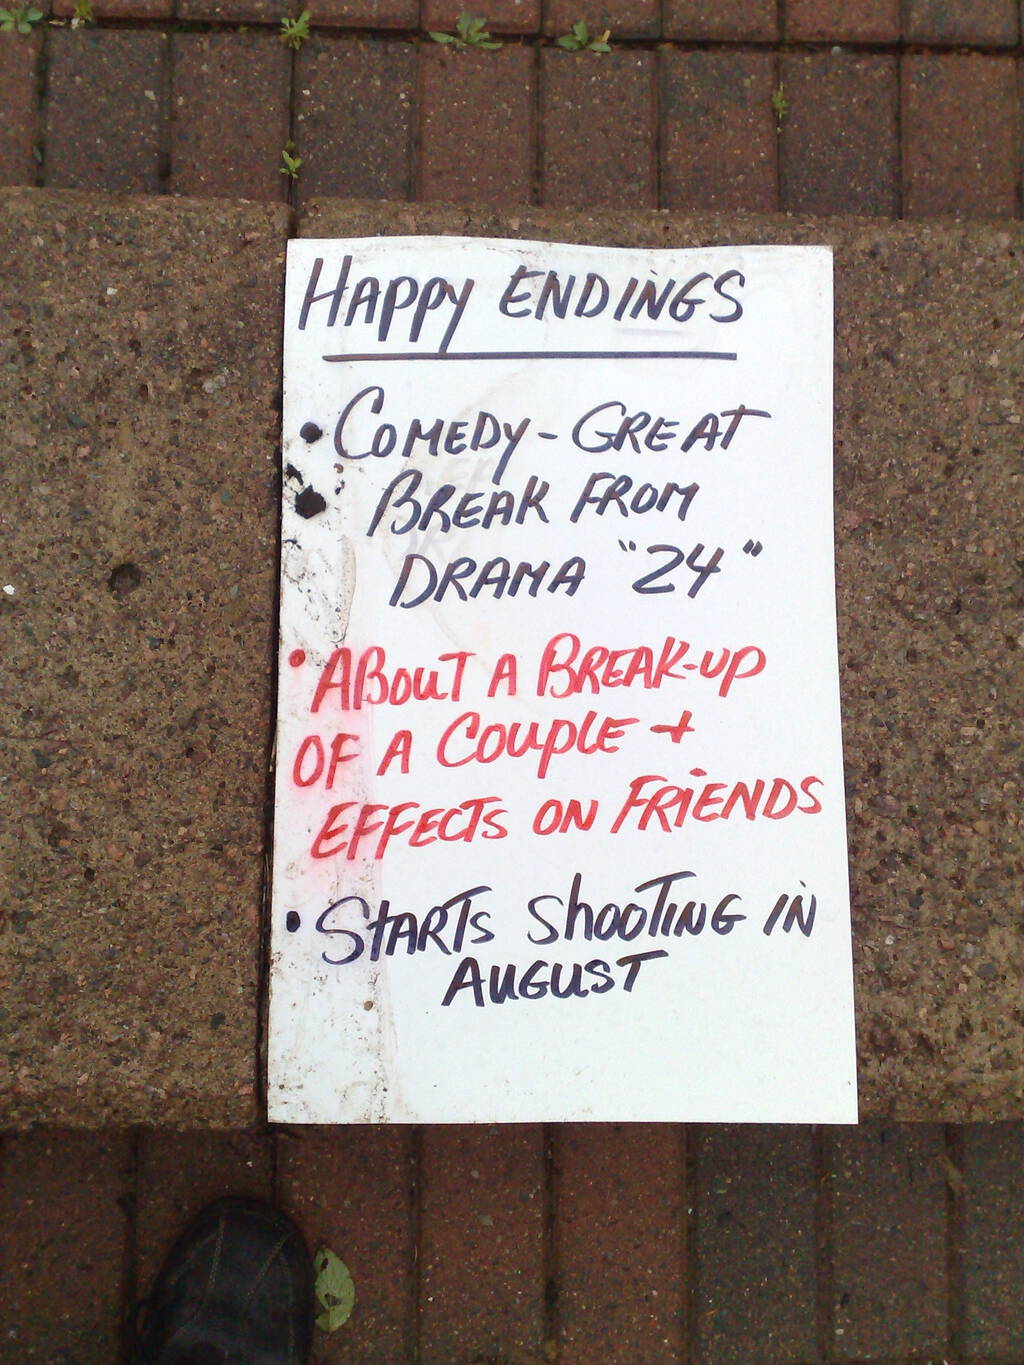 HAPPY ENDINGS
• COMEDY - GREAT
BREAK FROM
DRAMA "24"
• ABOUT A BREAK-UP
OF A COUPLE +
EFFECTS ON FRIENDS
• STARTS ShOOTING IN
AUGUST